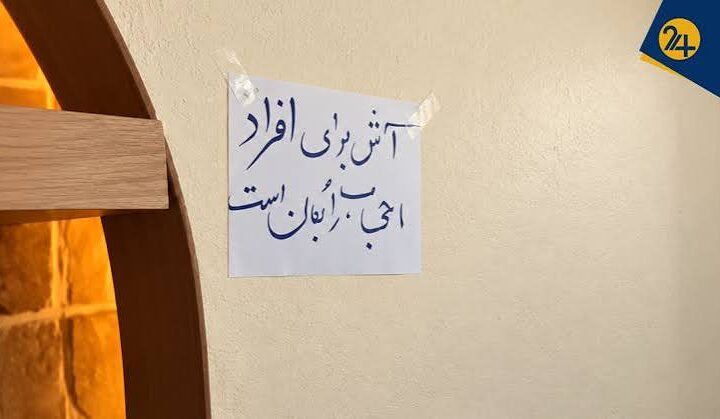 آش برای افراد
باحجاب رایگان است
24